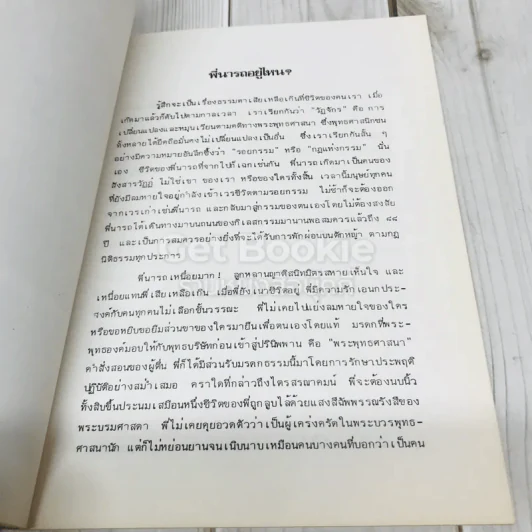 พี่นารถอยู่ไหน?
รู้สึกจะเป็นเรื่องธรรมดาเสียเหลือเกินที่ชีวิตของคนเรา เมื่อ
เกิดมาแล้วก็ดับไปตามกาลเวลา เราเรียกกันว่า "วัฏจักร" คือ การ
เปลี่ยนแปลงและหมุนเวียนตามคติทางพระพุทธศาสนา ซึ่งพุทธศาสนิกชน
ทั้งหลายได้ยึดถือมั่นคงไม่เปลี่ยนแปลงเป็นอื่น ซึ่งเราเรียกกันสั้น ๆ
อย่างมีความหมายอันลึกซึ้งว่า "รอยกรรม" หรือ "กฎแห่งกรรม" นั่น
เอง ชีวิตของพี่นารถที่จากไปก็เฉกเช่นกัน พี่นารถเกิดมาเป็นคนของ
สังสารวัฏฏ์ ไม่ใช่เขา ของเรา หรือของใครทั้งสิ้น เวลานี้มนุษย์ทุกคน
ที่ยังมีลมหายใจอยู่กำลังเข้าเวรชีวิตตามรอยกรรม ไม่ช้าก็จะต้องออก
จากเวรเก่าเช่นพี่นารถ และกลับมาสู่กรรมของตนเองโดยไม่ต้องสงสัย
พี่นารถได้เดินทางมาบนถนนของกิเลสกรรมมานานพอสมควรแล้วถึง ๔๘
ปี และเป็นกาลสมควรอย่างยิ่งที่จะได้รับการพักผ่อนบนตักหญ้า ตามกฎ
นิติธรรมทุกประการ
พี่นารถเหนื่อยมาก! ลูกหลานญาติสนิทมิตรสหายเห็นใจ และ
เหนื่อยแทนพี่เสียเหลือเกิน เมื่อพี่ยังเนาวชีวิตอยู่ พี่มีความรักเอนกประ-
สงค์กับคนทุกคนไม่เลือกชั้นวรรณะ พี่ไม่เคยไปแย่งลมหายใจของใคร
หรือขอหยิบขอยืมส่วนขาของใครมายืนเพื่อตนเองโดยแท้ มรดกที่พระ-
พุทธองค์มอบให้กับพุทธบริษัทก่อนเข้าสู่ปรินิพพาน คือ "พระพุทธศาสนา"
คำสั่งสอนของผู้ตื่น พี่ก็ได้มีส่วนรับมรดกธรรมนี้มาโดยการรักษาประพฤติ
ปฏิบัติอย่างสม่ำเสมอ คราใดที่กล่าวถึงไตรสรณาคมน์ พี่จะต้องนบนิ้ว
ทั้งสิบขึ้นประนมเสมือนหนึ่งชีวิตของพี่ถูกลูบไล้ด้วยแสงสีฉัพพรรณรังสีของ
พระบรมศาสดา พี่ไม่เคยคุยอวดตัวว่าเป็นผู้เคร่งครัดในพระบวรพุทธ-
ศาสนานัก แต่ก็ไม่หย่อนยานจนเนิบนาบเหมือนคนบางคนที่บอกว่าเป็นคน
Get Bookie